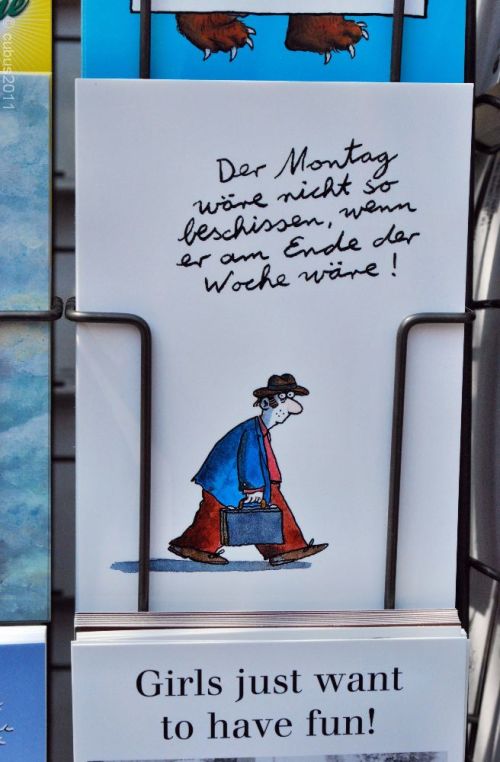 © cubus2011
Der Montag
wäre nicht so
beschissen, wenn
er am Ende der
Woche wäre!
Girls just want
to have fun!